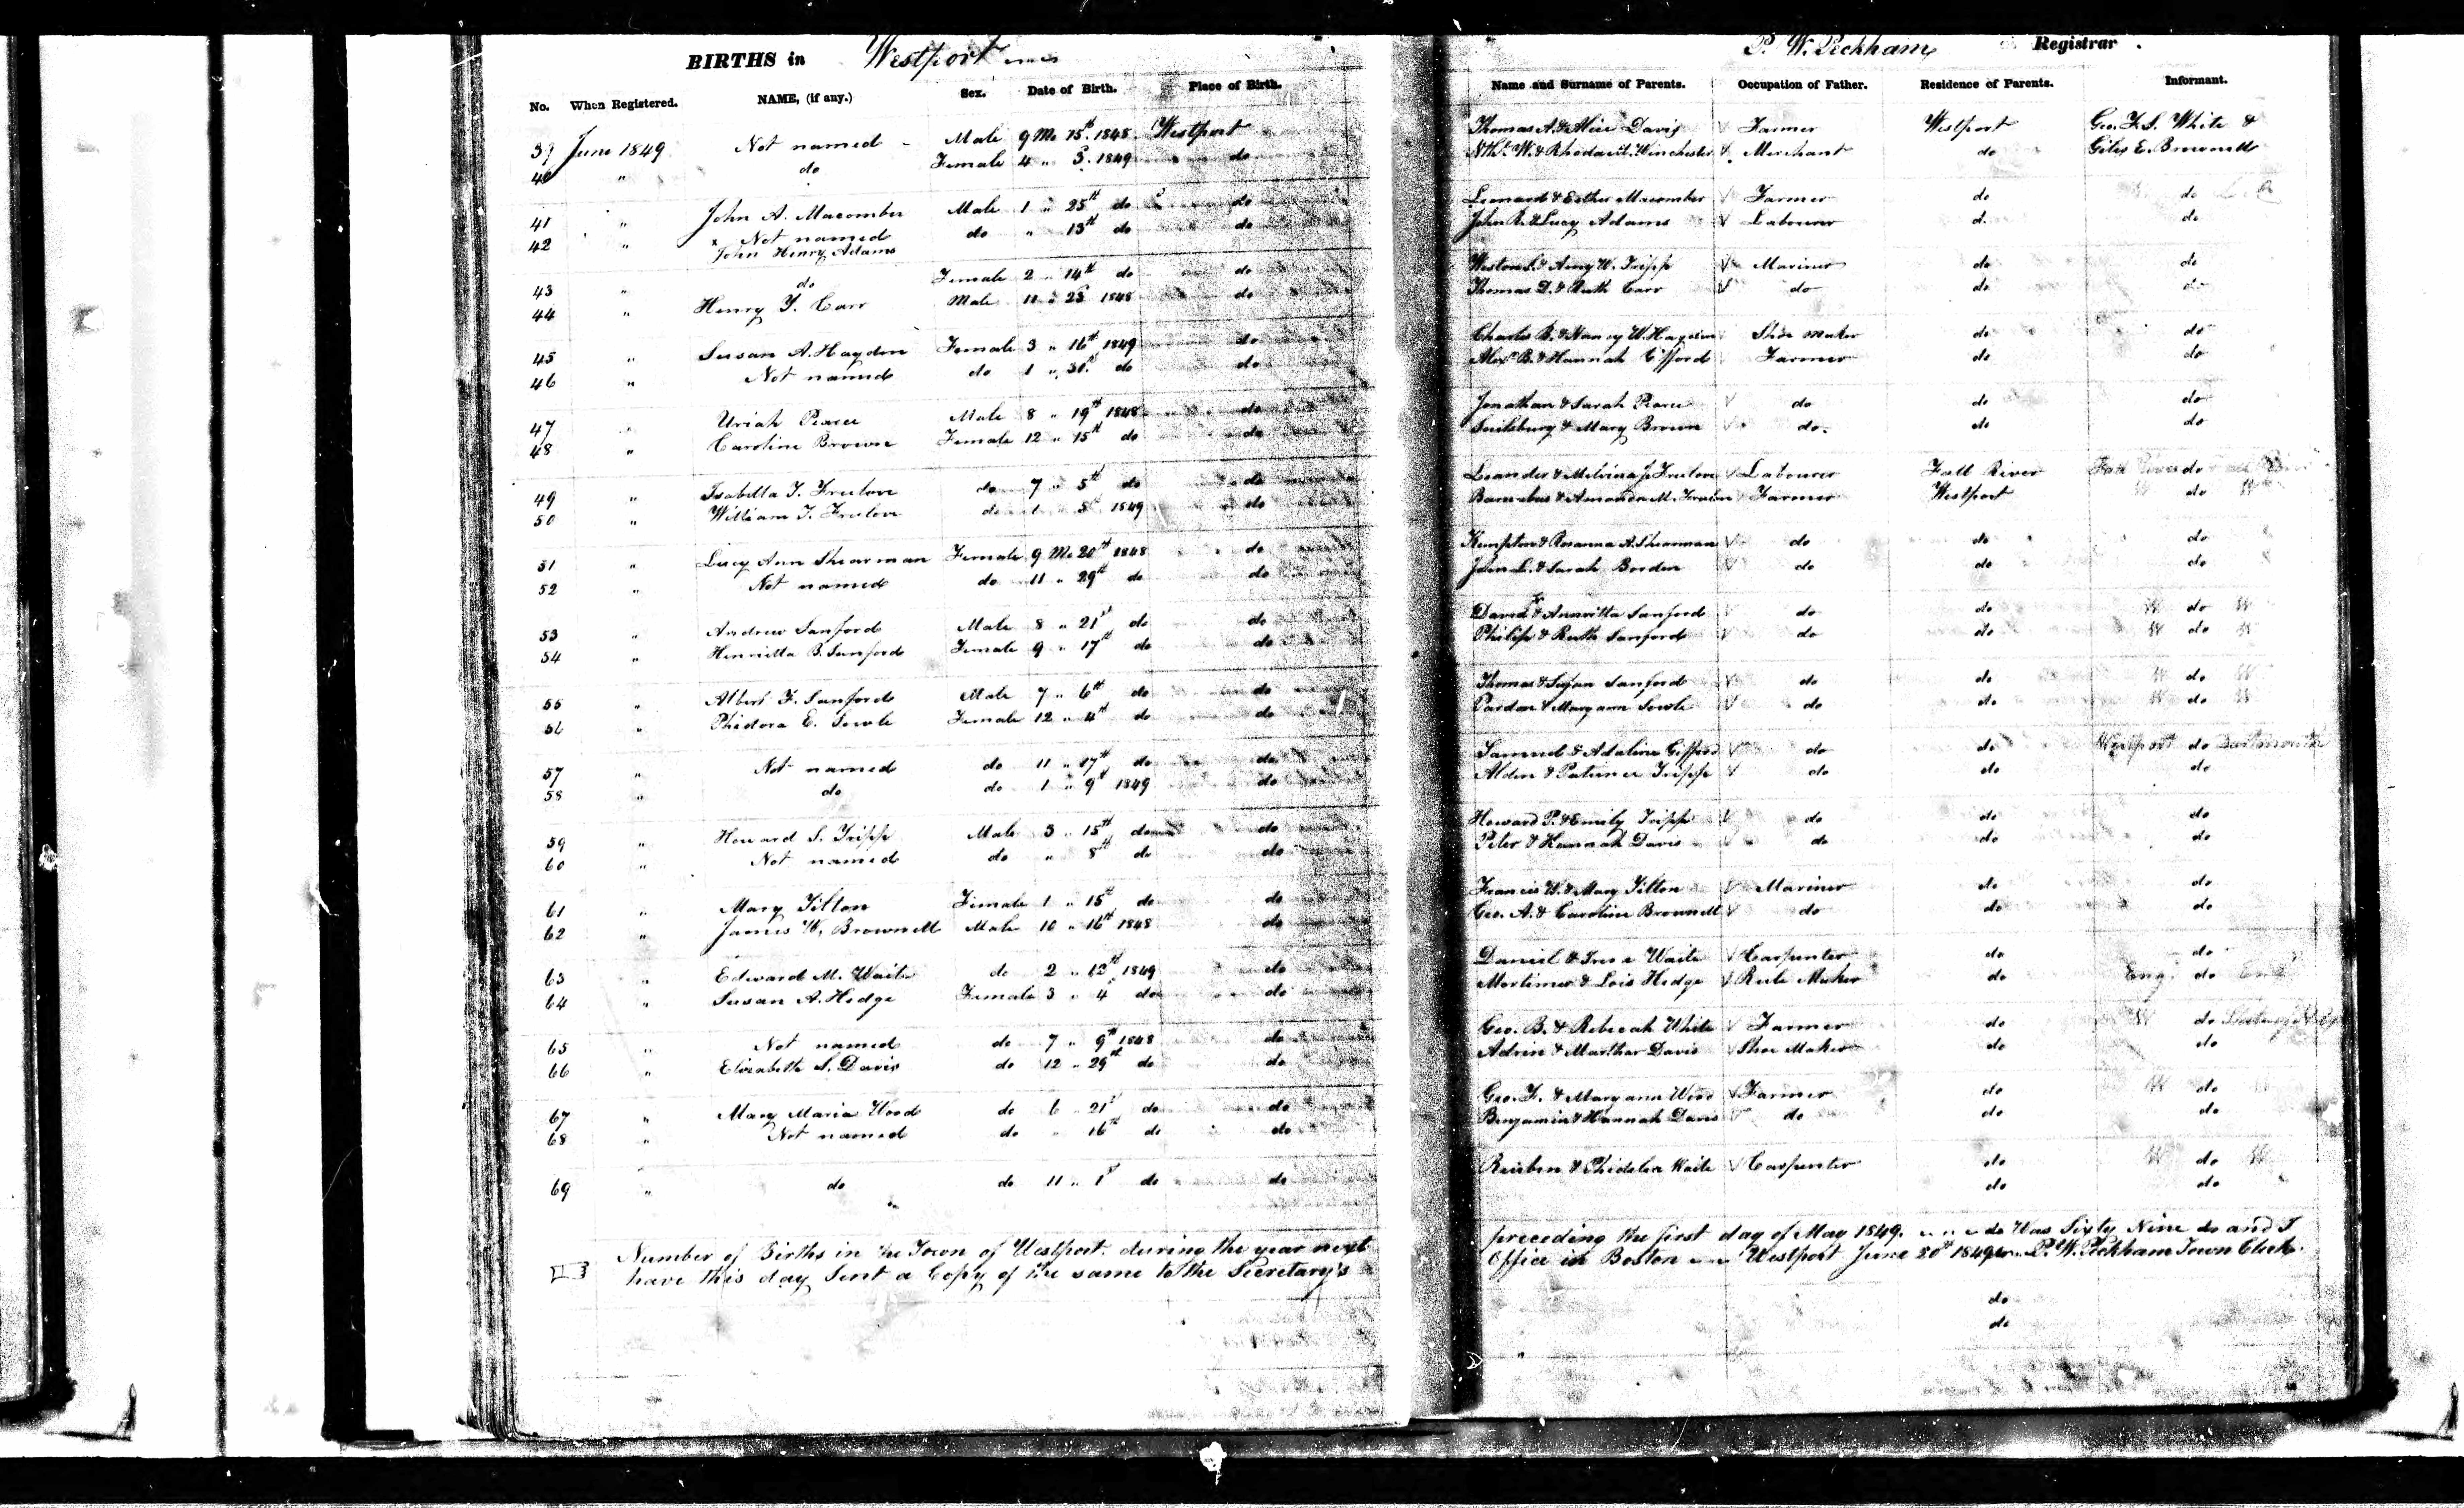 BIRTHS in Westport
P. W. Peckham Registrar
No. When Registered. NAME, (if any.) Sex. Date of Birth. Place of Birth. Name and Surname of Parents. Occupation of Father. Residence of Parents. Informant.
39 June 1849 Not named Male 9 Mo 15th 1848 Westport Thomas A. & Alice Davis Farmer Westport Geo. F. S. White &
40 " do Female 4 " 5. 1849 do Nthl W. & Rhoda A. Winchester Merchant do Giles E. Brownell
41 " John A. Macomber Male 1 " 25th do do Leonard & Esther Macomber Farmer do do
42 " Not named do " 13th do do John R. & Lucy Adams Labourer do do
John Henry Adams
43 " do Female 2 " 14th do do Weston S. & Amy W. Tripp Mariner do do
44 " Henry T. Carr Male 11 " 23 1848 do Thomas D. & Ruth Carr do do do
45 " Susan A. Haydon Female 3 " 16th 1849 do Charles B. & Nancy W. Haydon Shoe Maker do do
46 " Not named do 1 " 31st do do Alexr B. & Hannah Gifford Farmer do do
47 " Uriah Pearce Male 8 " 19th 1848 do Jonathan & Sarah Pearce do do do
48 " Caroline Brown Female 12 " 15th do do & Mary Brown do. do do
49 " Isabella T. Truelove do 7 " 5th do do Leander & Melvina J. Labourer Fall River Fall River do
50 " William T. do 1 5th 1849 do Barnabus & Amanda M. Farmer Westport W do W
51 " Lucy Ann Shearman Female 9 Mo 20th 1848 do Kempton & Rosanna A. Shearman do do do
52 " Not named do 11 " 29th do do John L. & Sarah Borden do do do
53 " Andrew Sanford Male 8 " 21st do do David & Sanford do do W do W
54 " Henrietta B. Sanford Female 9 " 17th do do Philip & Ruth Sanford do do W do W
55 " Albert F. Sanford Male 7 " 6th do do Thomas & Susan Sanford do do W do W
56 " Phidora E. Sowle Female 12 " 4th do do Pardon & Maryann Sowle do do W do W
57 " Not named do 11 " 17th do do Samuel & Adaline Gifford do do Westport do Dartmouth
58 " do do 1 " 9th 1849 do Alden & Patience Tripp do do do
59 " Howard S. Tripp Male 3 " 15th do do Howard P. & Emily Tripp do do do
60 " Not named do " 8th do do Peter & Hannah Davis do do do
61 " Mary Tilton Female 1 " 15 do do Francis W. & Mary Tilton Mariner do do
62 " James W. Brownell Male 10 " 16th 1848 do Geo. A. & Caroline Brownell do do do
63 " Edward M. Waite do 2 " 12th 1849 do Daniel & Waite Carpenter do do
64 " Susan A. Hedge Female 3 " 4 do do Mortimer & Lois Hedge Rule Maker do Eng. do Eng
65 " Not named do 7 " 9th 1848 do Geo. B. & Rebecah White Farmer do W do
66 " Elizabeth S. Davis do 12 " 29th do do Adrin & Marthar Davis Shoe Maker do do
67 " Mary Maria Wood do 6 " 21st do do Geo. F. & Maryann Wood Farmer do W do W
68 " Not named do " 16th do do Benjamin & Hannah Davis do do do
69 " do do 11 " 1st do do Reuben & Phidelia Waite Carpenter do W do W
do do
Number of Births in the Town of Westport during the year next preceding the first day of May 1849. Was Sixty Nine and I
have this day Sent a Copy of the same to the Secretary's Office in Boston Westport June 30th 1849 P. W. Peckham Town Clerk.
do
do